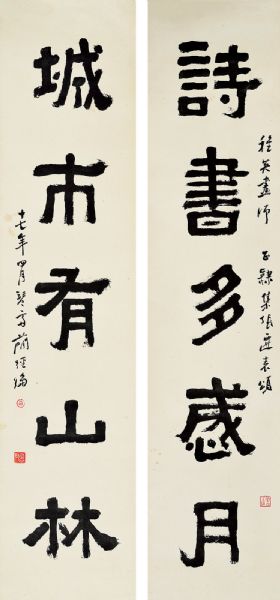 詩書多感月
稚英畫師 正隸集張遷表頌
城市有山林
十七年四月琴齋簡經綸